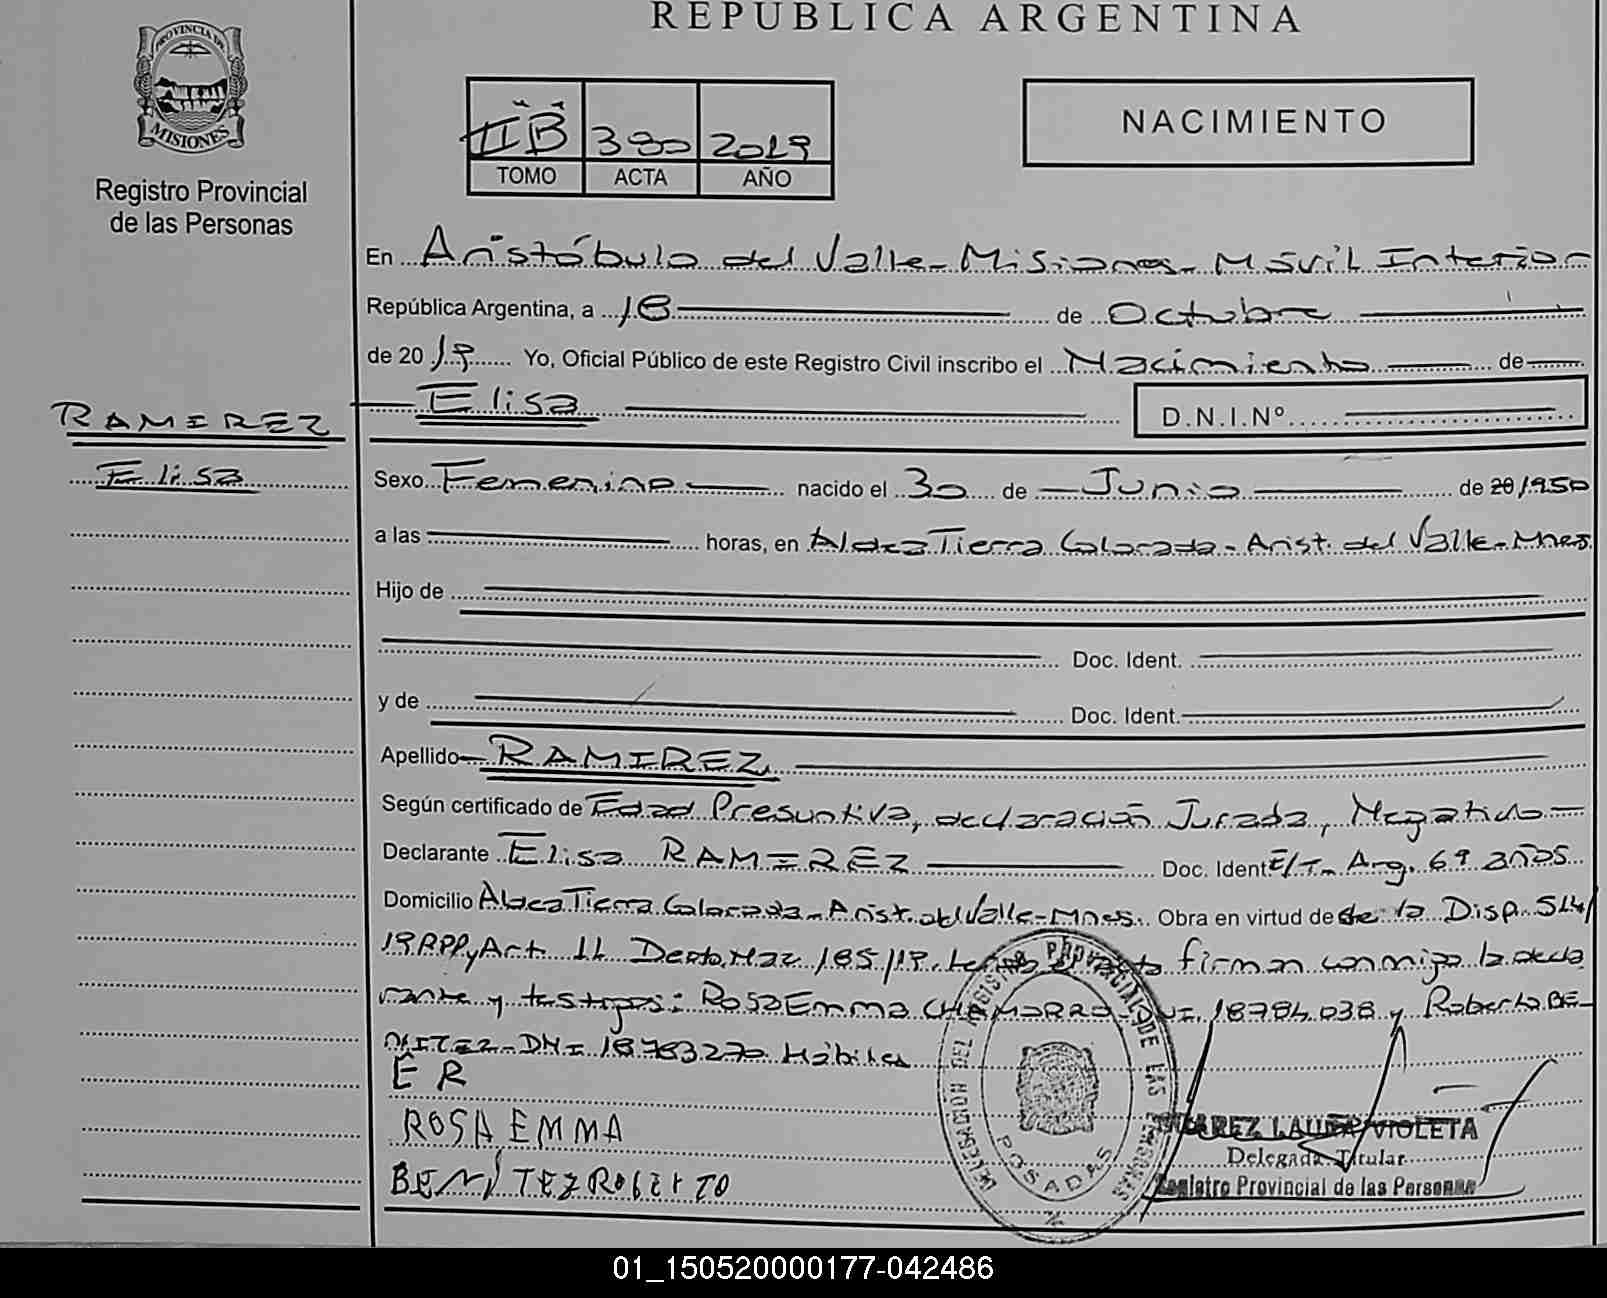 REPUBLICA ARGENTINA
PROVINCIA DE
MISIONES
Registro Provincial
de las Personas
II B 390 2019
TOMO ACTA AÑO
NACIMIENTO
En Aristóbulo del Valle - Misiones - Móvil Interior
República Argentina, a 18 de Octubre
de 2019 Yo, Oficial Público de este Registro Civil inscribo el Nacimiento de
Elisa D.N.I.Nº
RAMIREZ
Elisa
Sexo Femenino nacido el 30 de Junio de 20 1950
a las horas, en Aldea Tierra Colorada - Arist. del Valle - Mnes.
Hijo de
Doc. Ident.
y de Doc. Ident.
Apellido RAMIREZ
Según certificado de Edad Presuntiva, declaración Jurada, Negativo
Declarante Elisa RAMIREZ Doc. Ident E/T - Arg. 69 años
Domicilio Aldea Tierra Colorada - Arist. del Valle - Mnes. Obra en virtud de de la Disp.
19 RPP y Art. 11 185/19. firman conmigo la decla
rante y testigos: Rosa Emma CHAMORRO 18784.038 y Roberto BE-
NITEZ - DNI 18783270 Hábiles
E R
ROSA EMMA
BENITEZ ROBERTO
DELEGACION DEL REGISTRO PROVINCIAL DE LAS PERSONAS
POSADAS
VIOLETA
Delegada Titular
Registro Provincial de las Personas
01_150520000177-042486